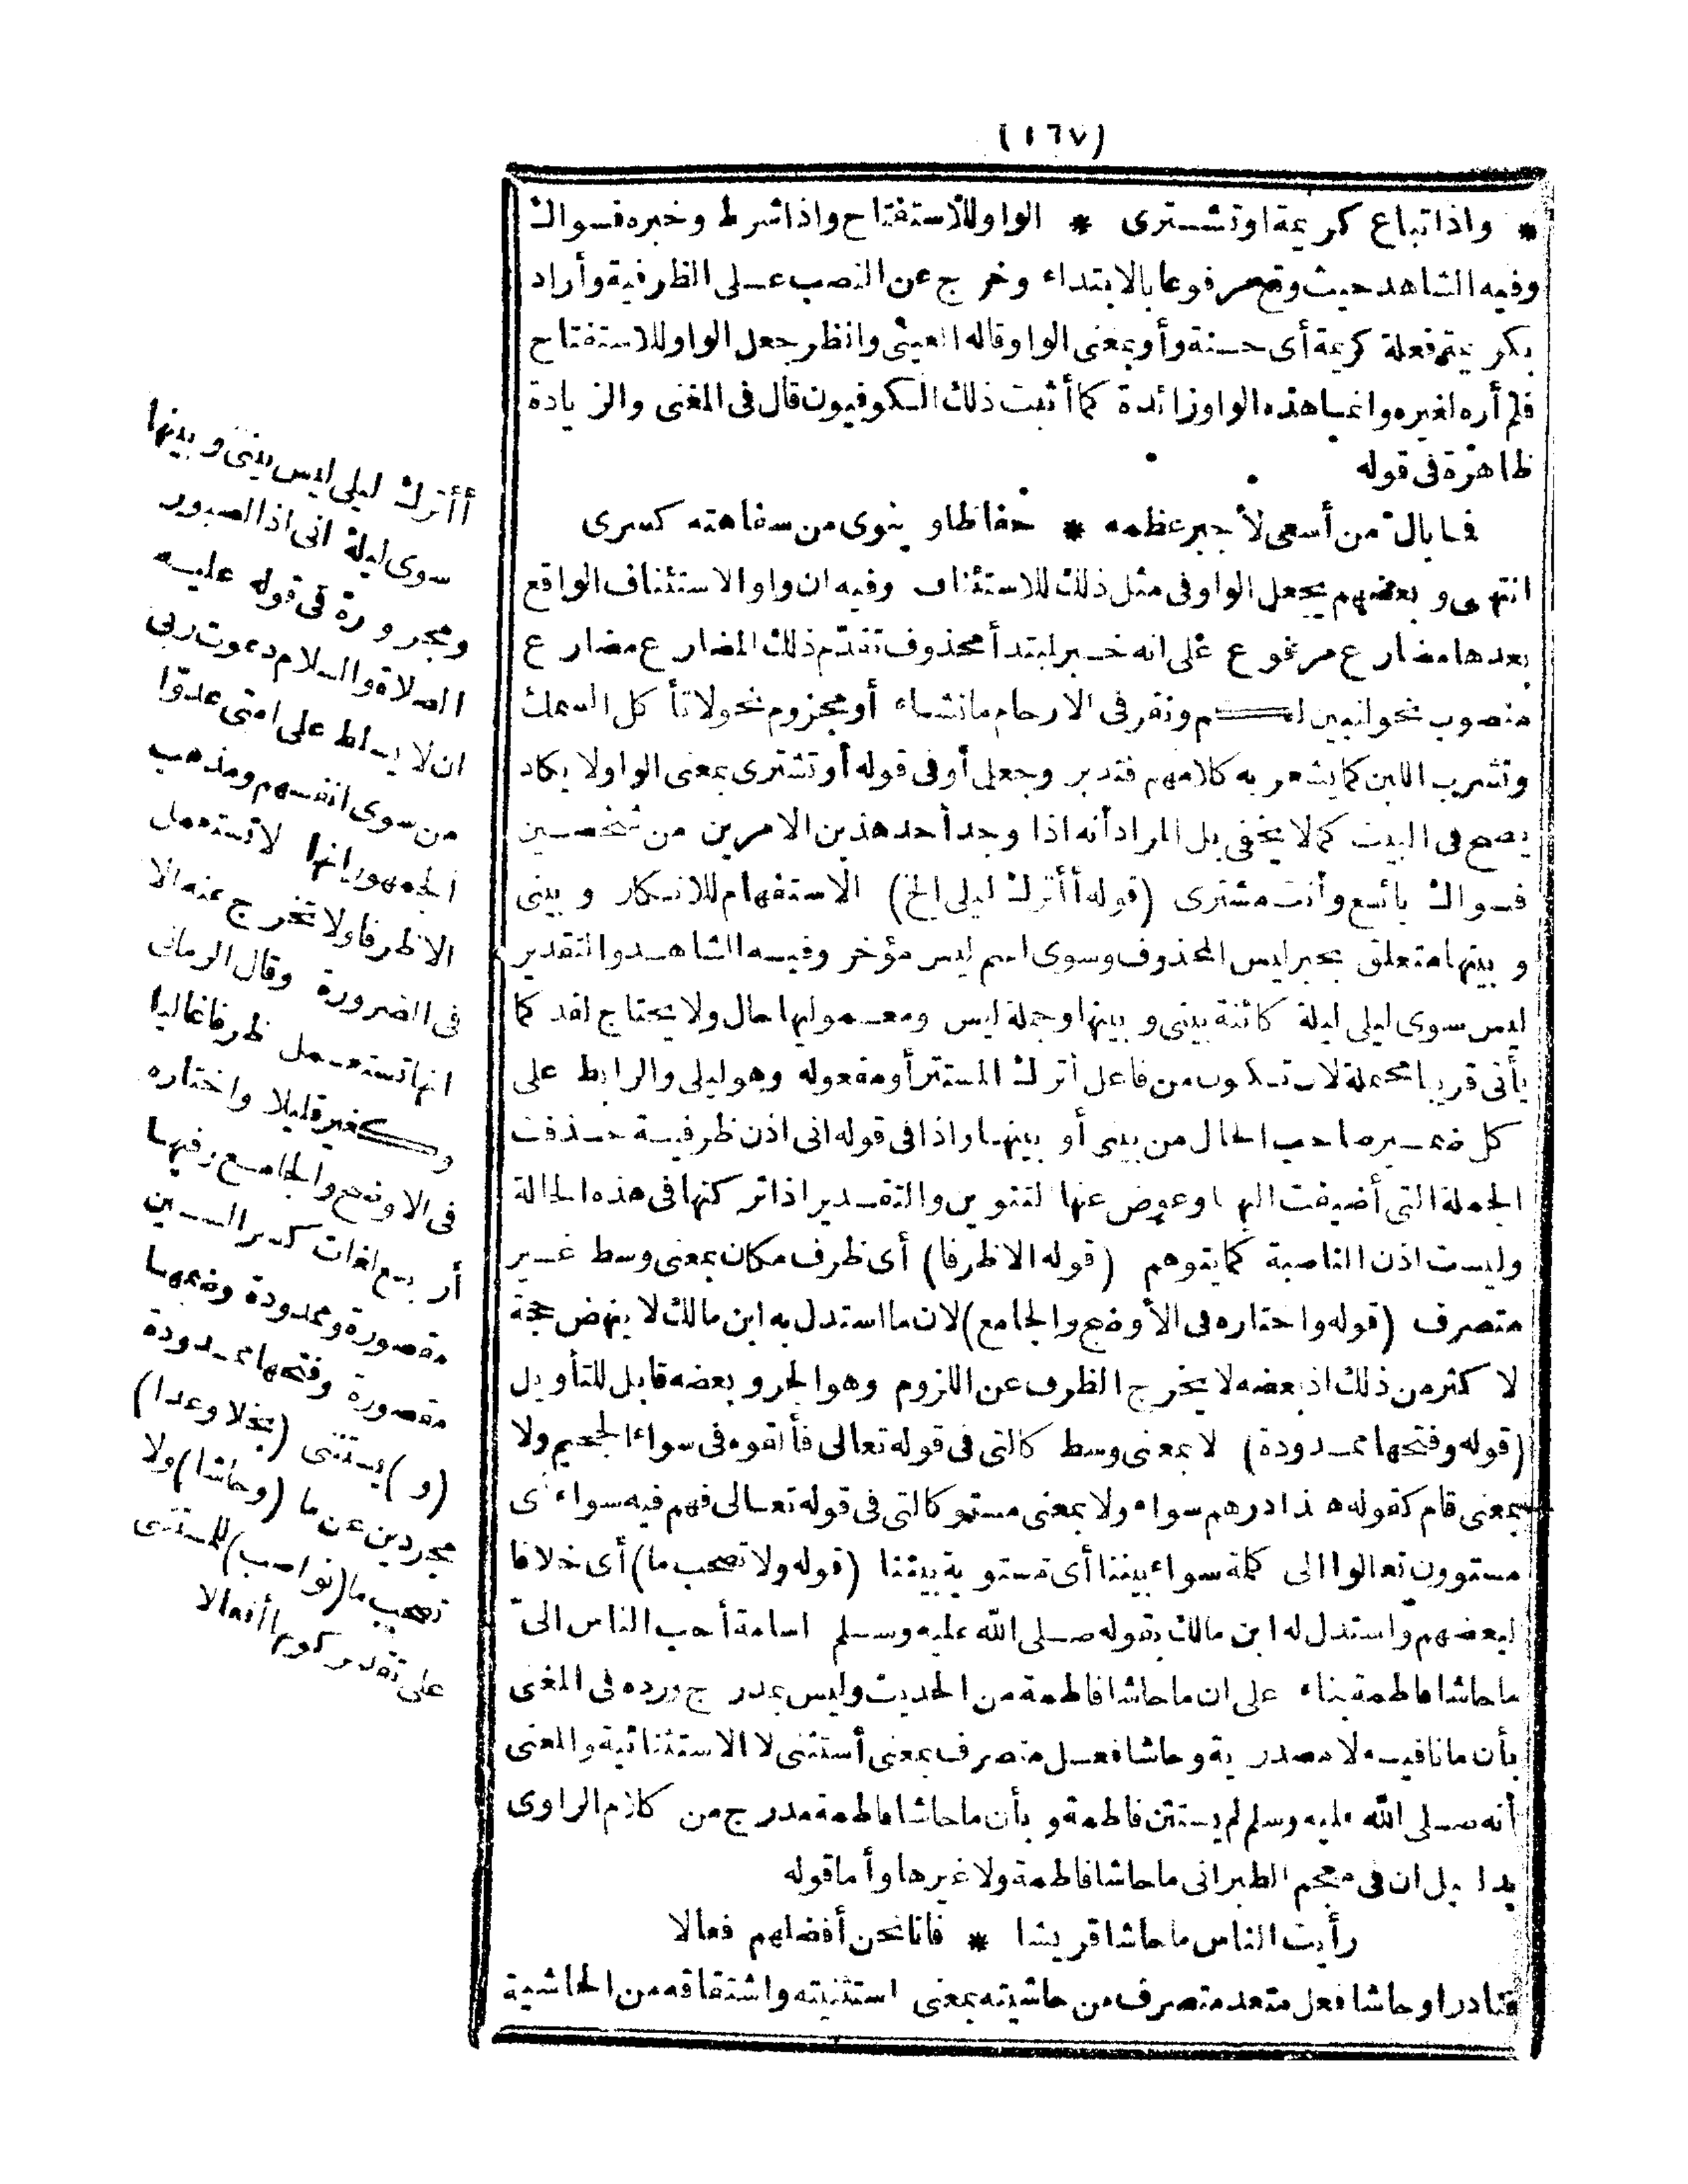 (١٦٧)
* واذا تباع كريمة او تشترى * الواو للاستفتاح واذا شرط وخبره فسواك
وفيه الشاهد حيث وقع مرفوعا بالابتداء وخرج عن النصب على الظرفية وأراد
بكريمة فعلة كريمة أى حسنة وأو بمعنى الواو قاله العينى وانظر جعل الواو للاستفتاح
فلم أره لغيره وانما هذه الواو زائدة كما أثبت ذلك الكوفيون قال فى المغنى والزيادة
ظاهرة فى قوله
فما بال من أسعى لأجبر عظمه * حفاظا وينوى من سفاهته كسرى
انتهى وبعضهم يجعل الواو فى مثل ذلك للاستئناف وفيه ان واو الاستئناف الواقع
بعدها مضارع مرفوع على انه خبر لمبتدأ محذوف تقدّم ذلك المضارع مضارع
منصوب نحو لنبين لكم ونقر فى الارحام ما نشاء أو مجزوم نحو لا تأكل السمك
وتشرب اللبن كما يشعر به كلامهم فتدبر وجعل أو فى قوله أو تشترى بمعنى الواو لا يكاد
يصح فى البيت كما لا يخفى بل المراد أنه اذا وجد أحد هذين الامرين من شخصين
فسواك بائع وأنت مشترى (قوله أأترك ليلى الخ) الاستفهام للانكار وبينى
وبينها متعلق بخبر ليس المحذوف وسوى اسم ليس مؤخر وفيه الشاهد والتقدير
ليس سوى ليلى ليلة كائنة بينى وبينها وجملة ليس ومعموليها حال ولا يحتاج لقد كما
يأتى قريبا محتملة لان تكون من فاعل أترك المستتر أو مفعوله وهو ليلى والرابط على
كل ضمير صاحب الحال من بينى أو بينها واذا فى قوله انى اذن ظرفية حذفت
الجملة التى أضيفت اليها وعوض عنها التنوين والتقدير اذا تركتها فى هذه الحالة
وليست اذن الناصبة كما يتوهم (قوله الا ظرفا) أى ظرف مكان بمعنى وسط غير
متصرف (قوله واختاره فى الأوضح والجامع) لان ما استدل به ابن مالك لا ينهض حجة
لا كثر من ذلك اذ بعضه لا يخرج الظرف عن اللزوم وهو الجر وبعضه قابل للتأويل
(قوله وفتحها ممدودة) لا بمعنى وسط كالتى فى قوله تعالى فألقوه فى سواء الجحيم ولا
بمعنى قام كقوله هذا درهم سواء ولا بمعنى مستو كالتى فى قوله تعالى فهم فيه سواء أى
مستوون تعالوا الى كلمة سواء بيننا أى مستوية بيننا (قوله ولا تصحب ما) أى خلافا
لبعضهم واستدل له ابن مالك بقوله صلى الله عليه وسلم اسامة أحب الناس الىّ
ما حاشا فاطمة بناء على ان ما حاشا فاطمة من الحديث وليس بمدرج ورده فى المغنى
بأن ما نافية لا مصدرية وحاشا فعل متصرف بمعنى أستثنى لا الاستثنائية والمعنى
أنه صلى الله عليه وسلم لم يستثن فاطمة وبأن ما حاشا فاطمة مدرج من كلام الراوى
بدليل ان فى معجم الطبرانى ما حاشا فاطمة ولا غيرها وأما قوله
رأيت الناس ما حاشا قريشا * فانا نحن أفضلهم فعالا
فنادر او حاشا فعل متعد متصرف من حاشيته بمعنى استثنيته واشتقاقه من الحاشية
أأترك ليلى ليس بينى وبينها
سوى ليلة انى اذا لصبور
ومجرورة فى قوله عليه
الصلاة والسلام دعوت ربى
ان لا يسلط على امتى عدوّا
من سوى انفسهم ومذهب
الجمهور انها لا تستعمل
الا ظرفا ولا تخرج عنه الا
فى الضرورة وقال الرمانى
انها تستعمل ظرفا غالبا
وكغير قليلا واختاره
فى الاوضح والجامع وفيها
أربع لغات كسر السين
مقصورة وممدودة وضمها
مقصورة وفتحها ممدودة
(و) يستثنى (بخلا وعدا)
مجردين عن ما (وحاشا) ولا
تصحب ما (نواصب) للمستثنى
على تقدير كونها أفعالا